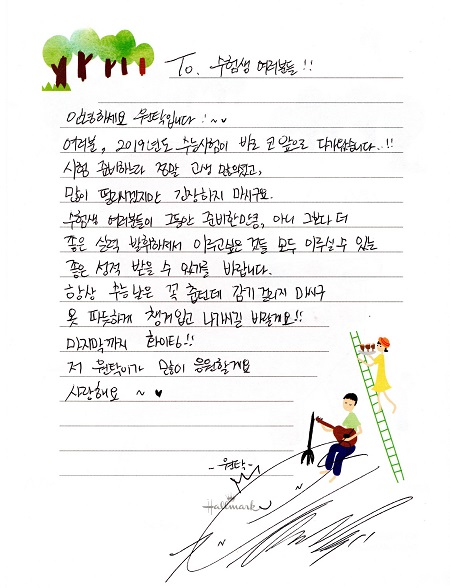 To. 수험생 여러분들 !!
안녕하세요 원탁입니다 :~♡
여러분, 2019년도 수능시험이 바로 코앞으로 다가왔습니다..!!
시험 준비하느라 정말 고생 많으셨고,
많이 떨리시겠지만 긴장하지 마시구요.
수험생 여러분들이 그동안 준비한만큼, 아니 그보다 더
좋은 실력 발휘하셔서 이루고싶은 것들 모두 이루실 수 있는
좋은 성적 받을 수 있기를 바랍니다.
항상 수능날은 꼭 춥던데 감기 걸리지 마시구
옷 따듯하게 챙겨입고 나가시길 바랄게요!!
마지막까지 화이팅!!
저 원탁이가 많이 응원할게요
사랑해요 ~ ♥
-원탁-
Hallmark